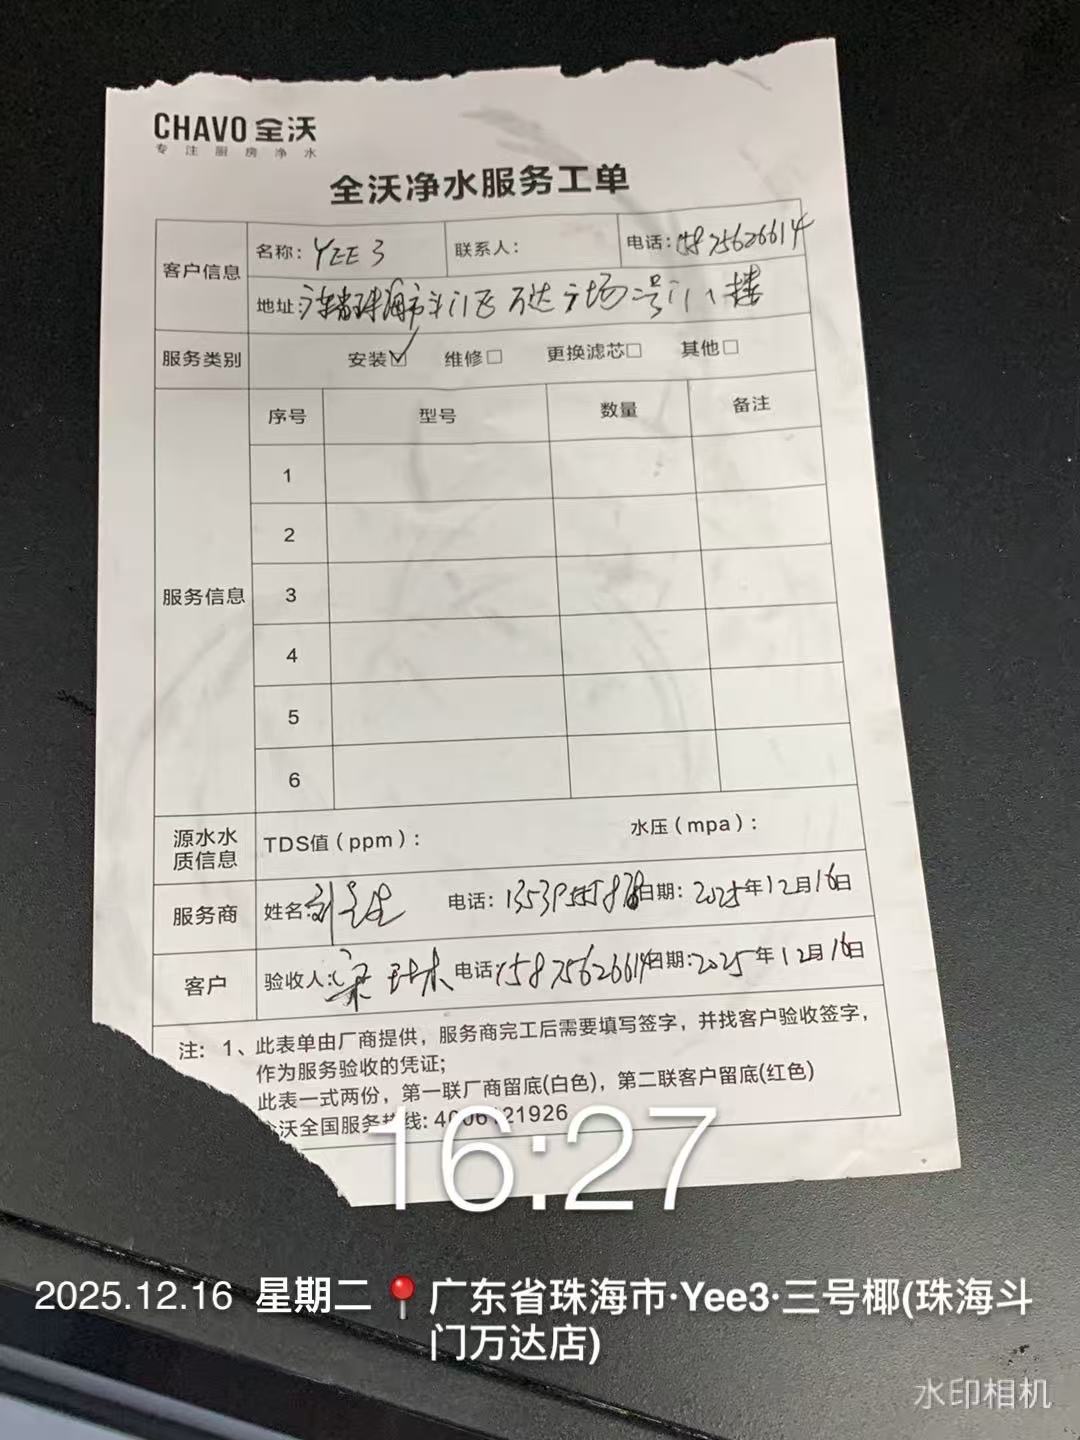 CHAVO 全沃
专注厨房净水
全沃净水服务工单
客户信息
名称: YEE 3 联系人: 电话: 15875626614
地址: 广东省珠海市斗门区万达广场二号门1楼
服务类别 安装☑ 维修□ 更换滤芯□ 其他□
服务信息
序号 型号 数量 备注
1
2
3
4
5
6
源水水质信息 TDS值(ppm): 水压(mpa):
服务商 姓名: 刘先生 电话: 日期: 2025年12月16日
客户 验收人: 电话: 15875626614 日期: 2025年12月16日
注: 1、此表单由厂商提供，服务商完工后需要填写签字，并找客户验收签字，
作为服务验收的凭证;
此表一式两份，第一联厂商留底(白色)，第二联客户留底(红色)
沃全国服务热线: 4006121926
16:27
2025.12.16 星期二 📍广东省珠海市·Yee3·三号椰(珠海斗
门万达店)
水印相机